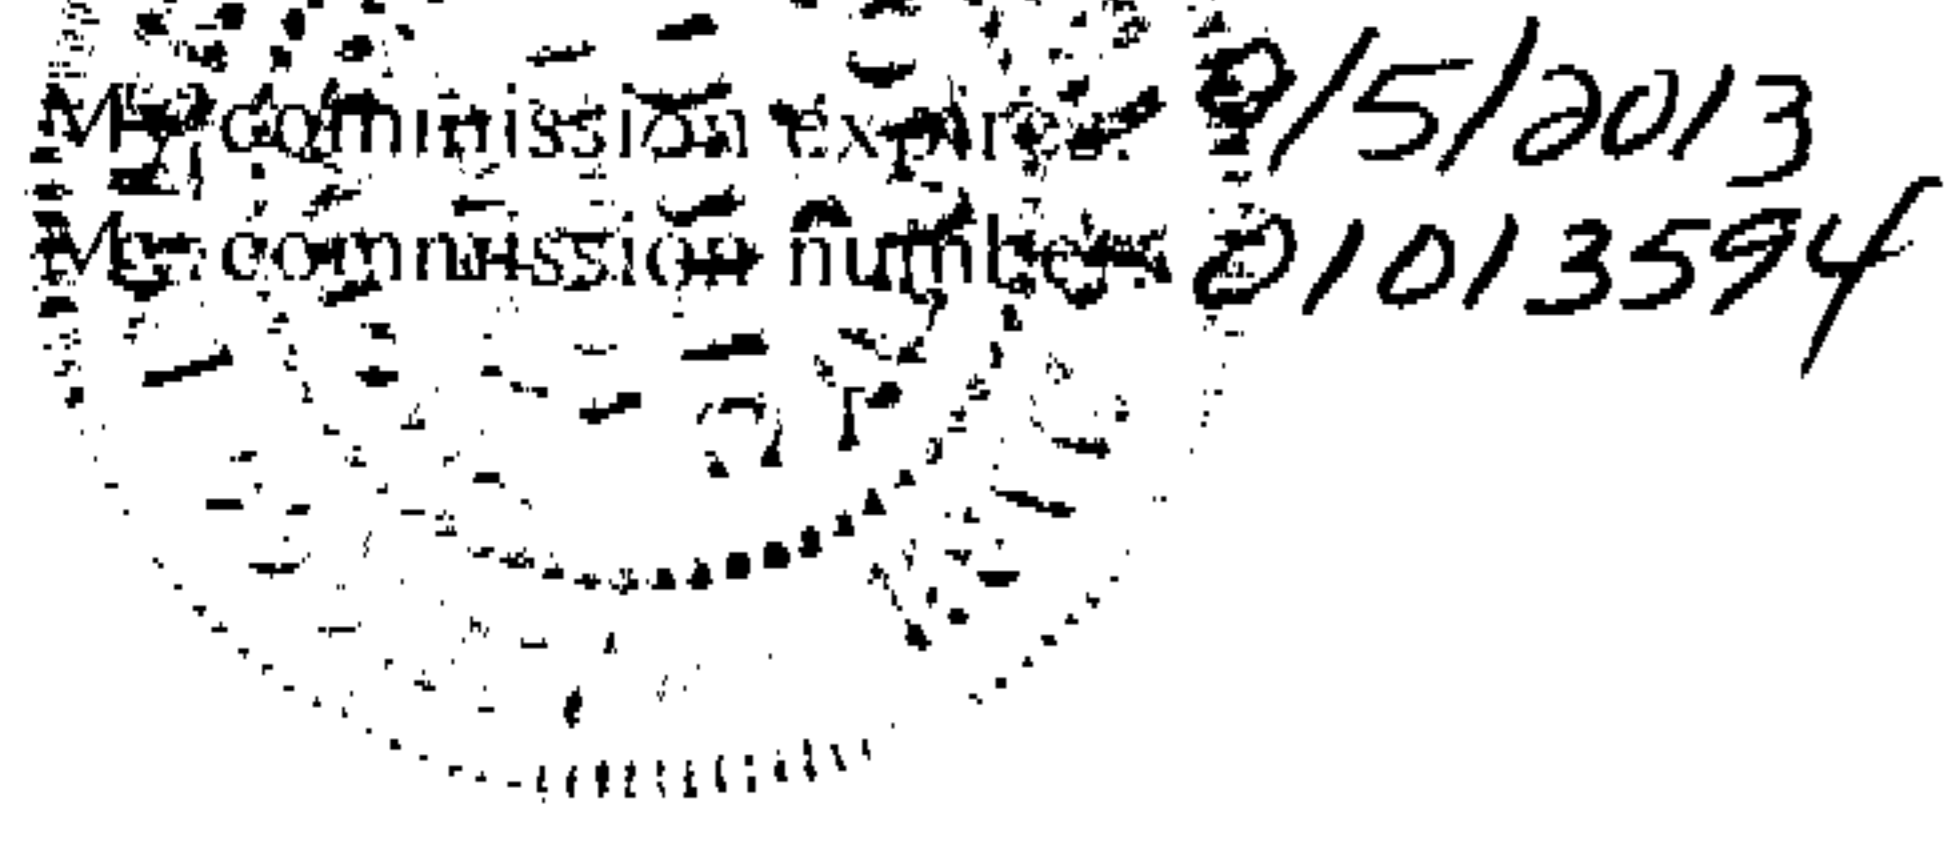 My commission expires: 9/5/2013
My commission number: 01013594